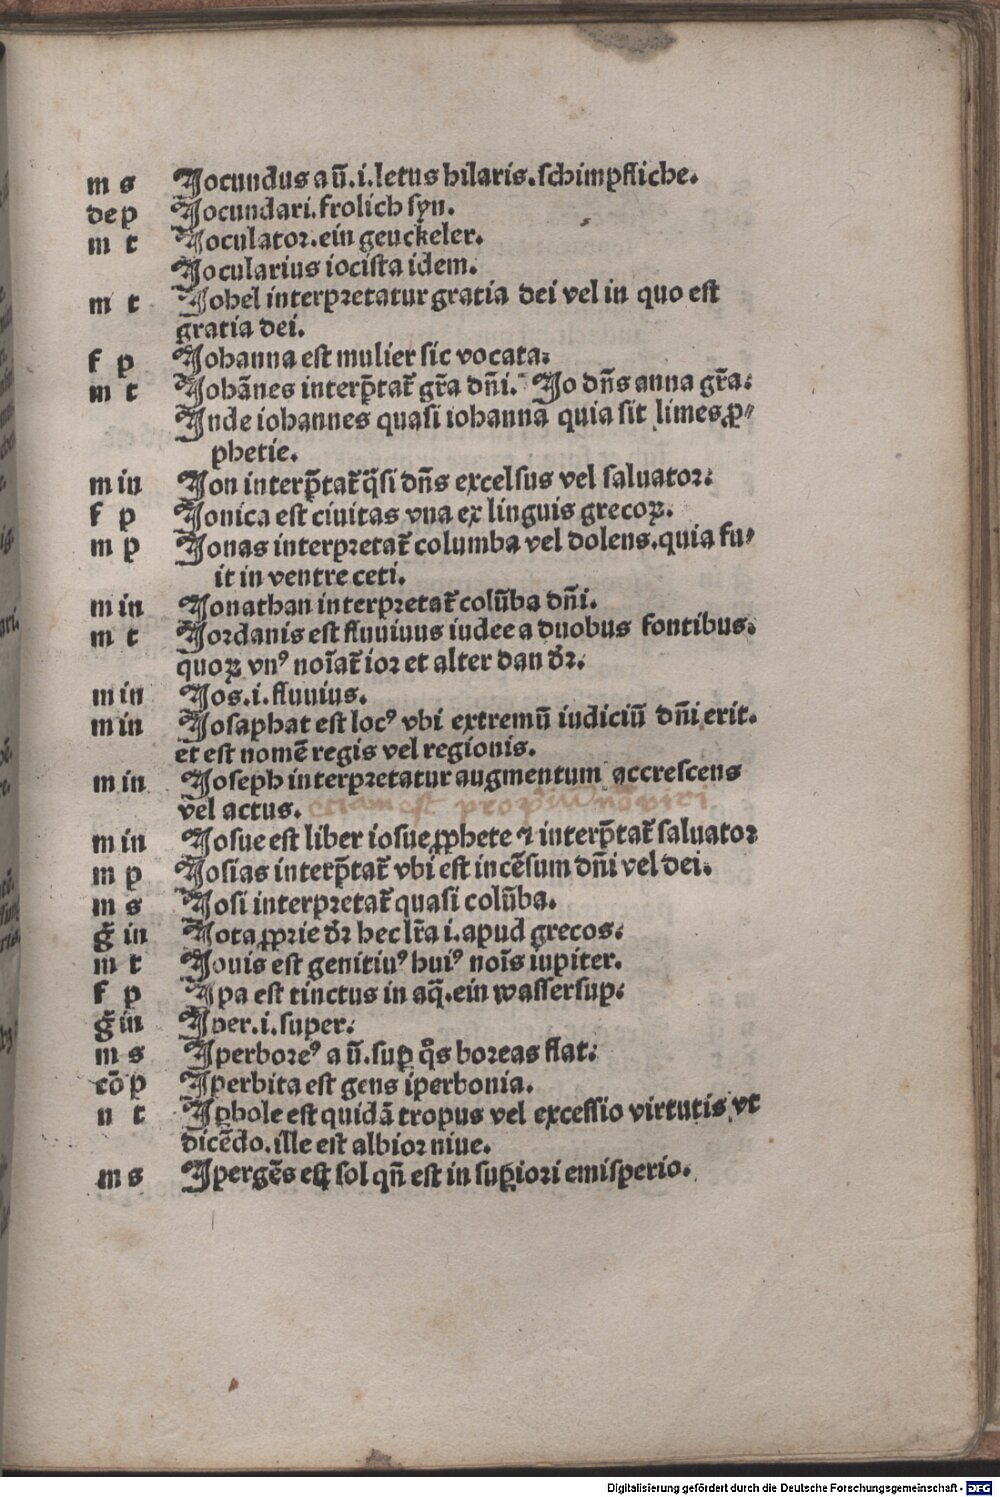 m s Jocundus a ū.i.letus hilaris.schimpfliche.
dep Jocundari.frolich syn.
m t Joculator.ein geuckeler.
Jocularius iocista idem.
m t Johel interpretatur gratia dei vel in quo est
gratia dei.
f p Johanna est mulier sic vocata:
m t Johānes interp̄tat᷑ gr̄a dn̄i. Jo dn̄s anna gr̄a:
Inde iohannes quasi iohanna quia sit limes ꝓ⸗
phetie.
m in Jon interp̄tat᷑ q̄si dn̄s excelsus vel saluator:
f p Jonica est ciuitas vna ex linguis grecoꝝ.
m p Jonas interpretat᷑ columba vel dolens.quia fu⸗
it in ventre ceti.
m in Jonathan interpretat᷑ colūba dn̄i.
m t Jordanis est fluuiuus iudee a duobus fontibus.
quoꝝ vnꝰ noīat᷑ ior et alter dan dr̄.
m in Jos.i.fluuius.
m in Josaphat est locꝰ vbi extremū iudiciū dn̄i erit.
et est nomē regis vel regionis.
m in Joseph interpretatur augmentum accrescens
vel actus. etiam est propriū nō viri
m in Josue est liber iosue ꝓphete ⁊ interp̄tat᷑ saluator
m p Josias interp̄tat᷑ vbi est incēsum dn̄i vel dei.
m s Josi interpretat᷑ quasi colūba.
ḡ in Jota ꝓprie dr̄ hec lr̄a i.apud grecos:
m t Jouis est genitiuꝰ huiꝰ noīs iupiter.
f p Ipa est tinctus in aq̄.ein wassersup:
ḡ in Iper.i.super:
m s Iperboreꝰ a ū.suꝑ q̄s boreas flat:
cō p Iperbita est gens iperbonia.
n t Iꝑbole est quidā tropus vel excessio virtutis vt
dicēdo.ille est albior niue.
m s Ipergēs est sol qn̄ est in suꝑiori emisperio.
Digitalisierung gefördert durch die Deutsche Forschungsgemeinschaft - DFG